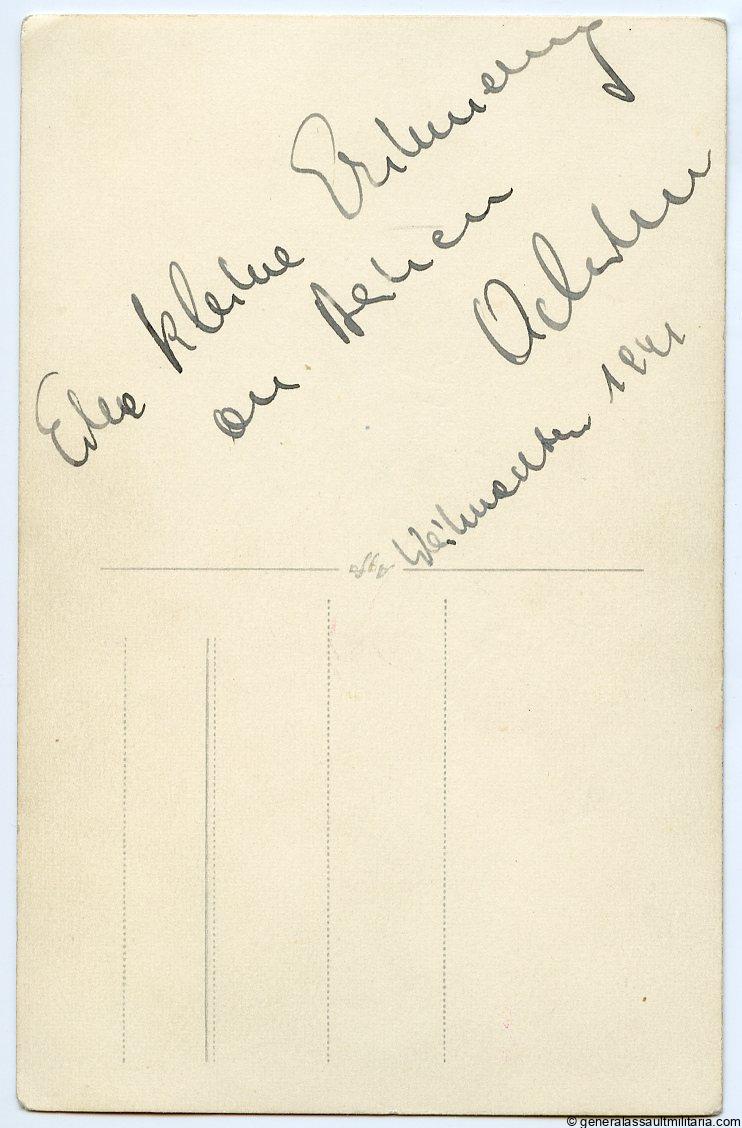 Eine kleine Erinnerung
an
Weihnachten 1941
© generalassaultmilitaria.com